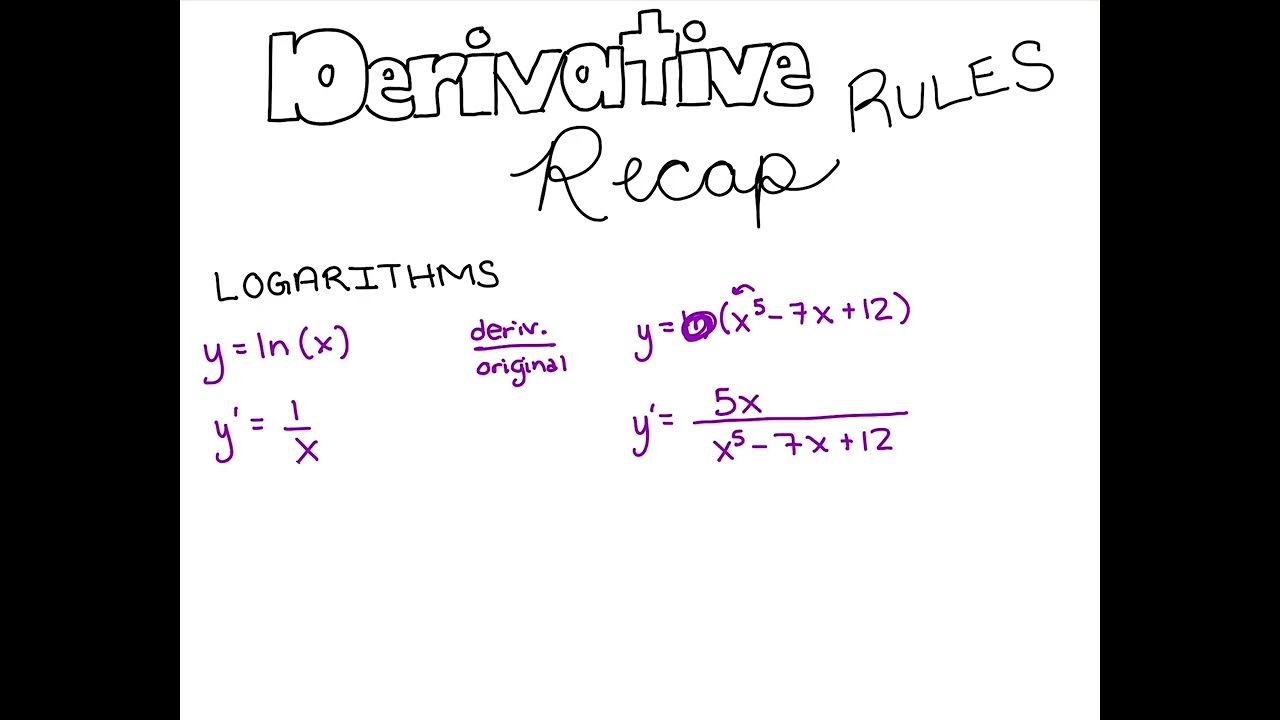 Derivative RULES
Recap
LOGARITHMS
y = ln(x)
deriv.
original
y = (x⁵ - 7x + 12)
y' = 1
x
y' = 5x
x⁵ - 7x + 12